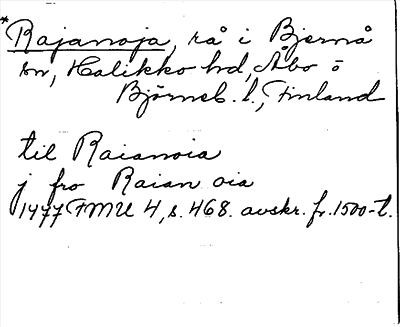 *Rajanoja, rå i Bjernå
sn, Halikko hd, Åbo o
Björneb. l., Finland
til Raianoia
j fro Raian oia
1477 FMU 4, s. 468. avskr. fr. 1500-t.